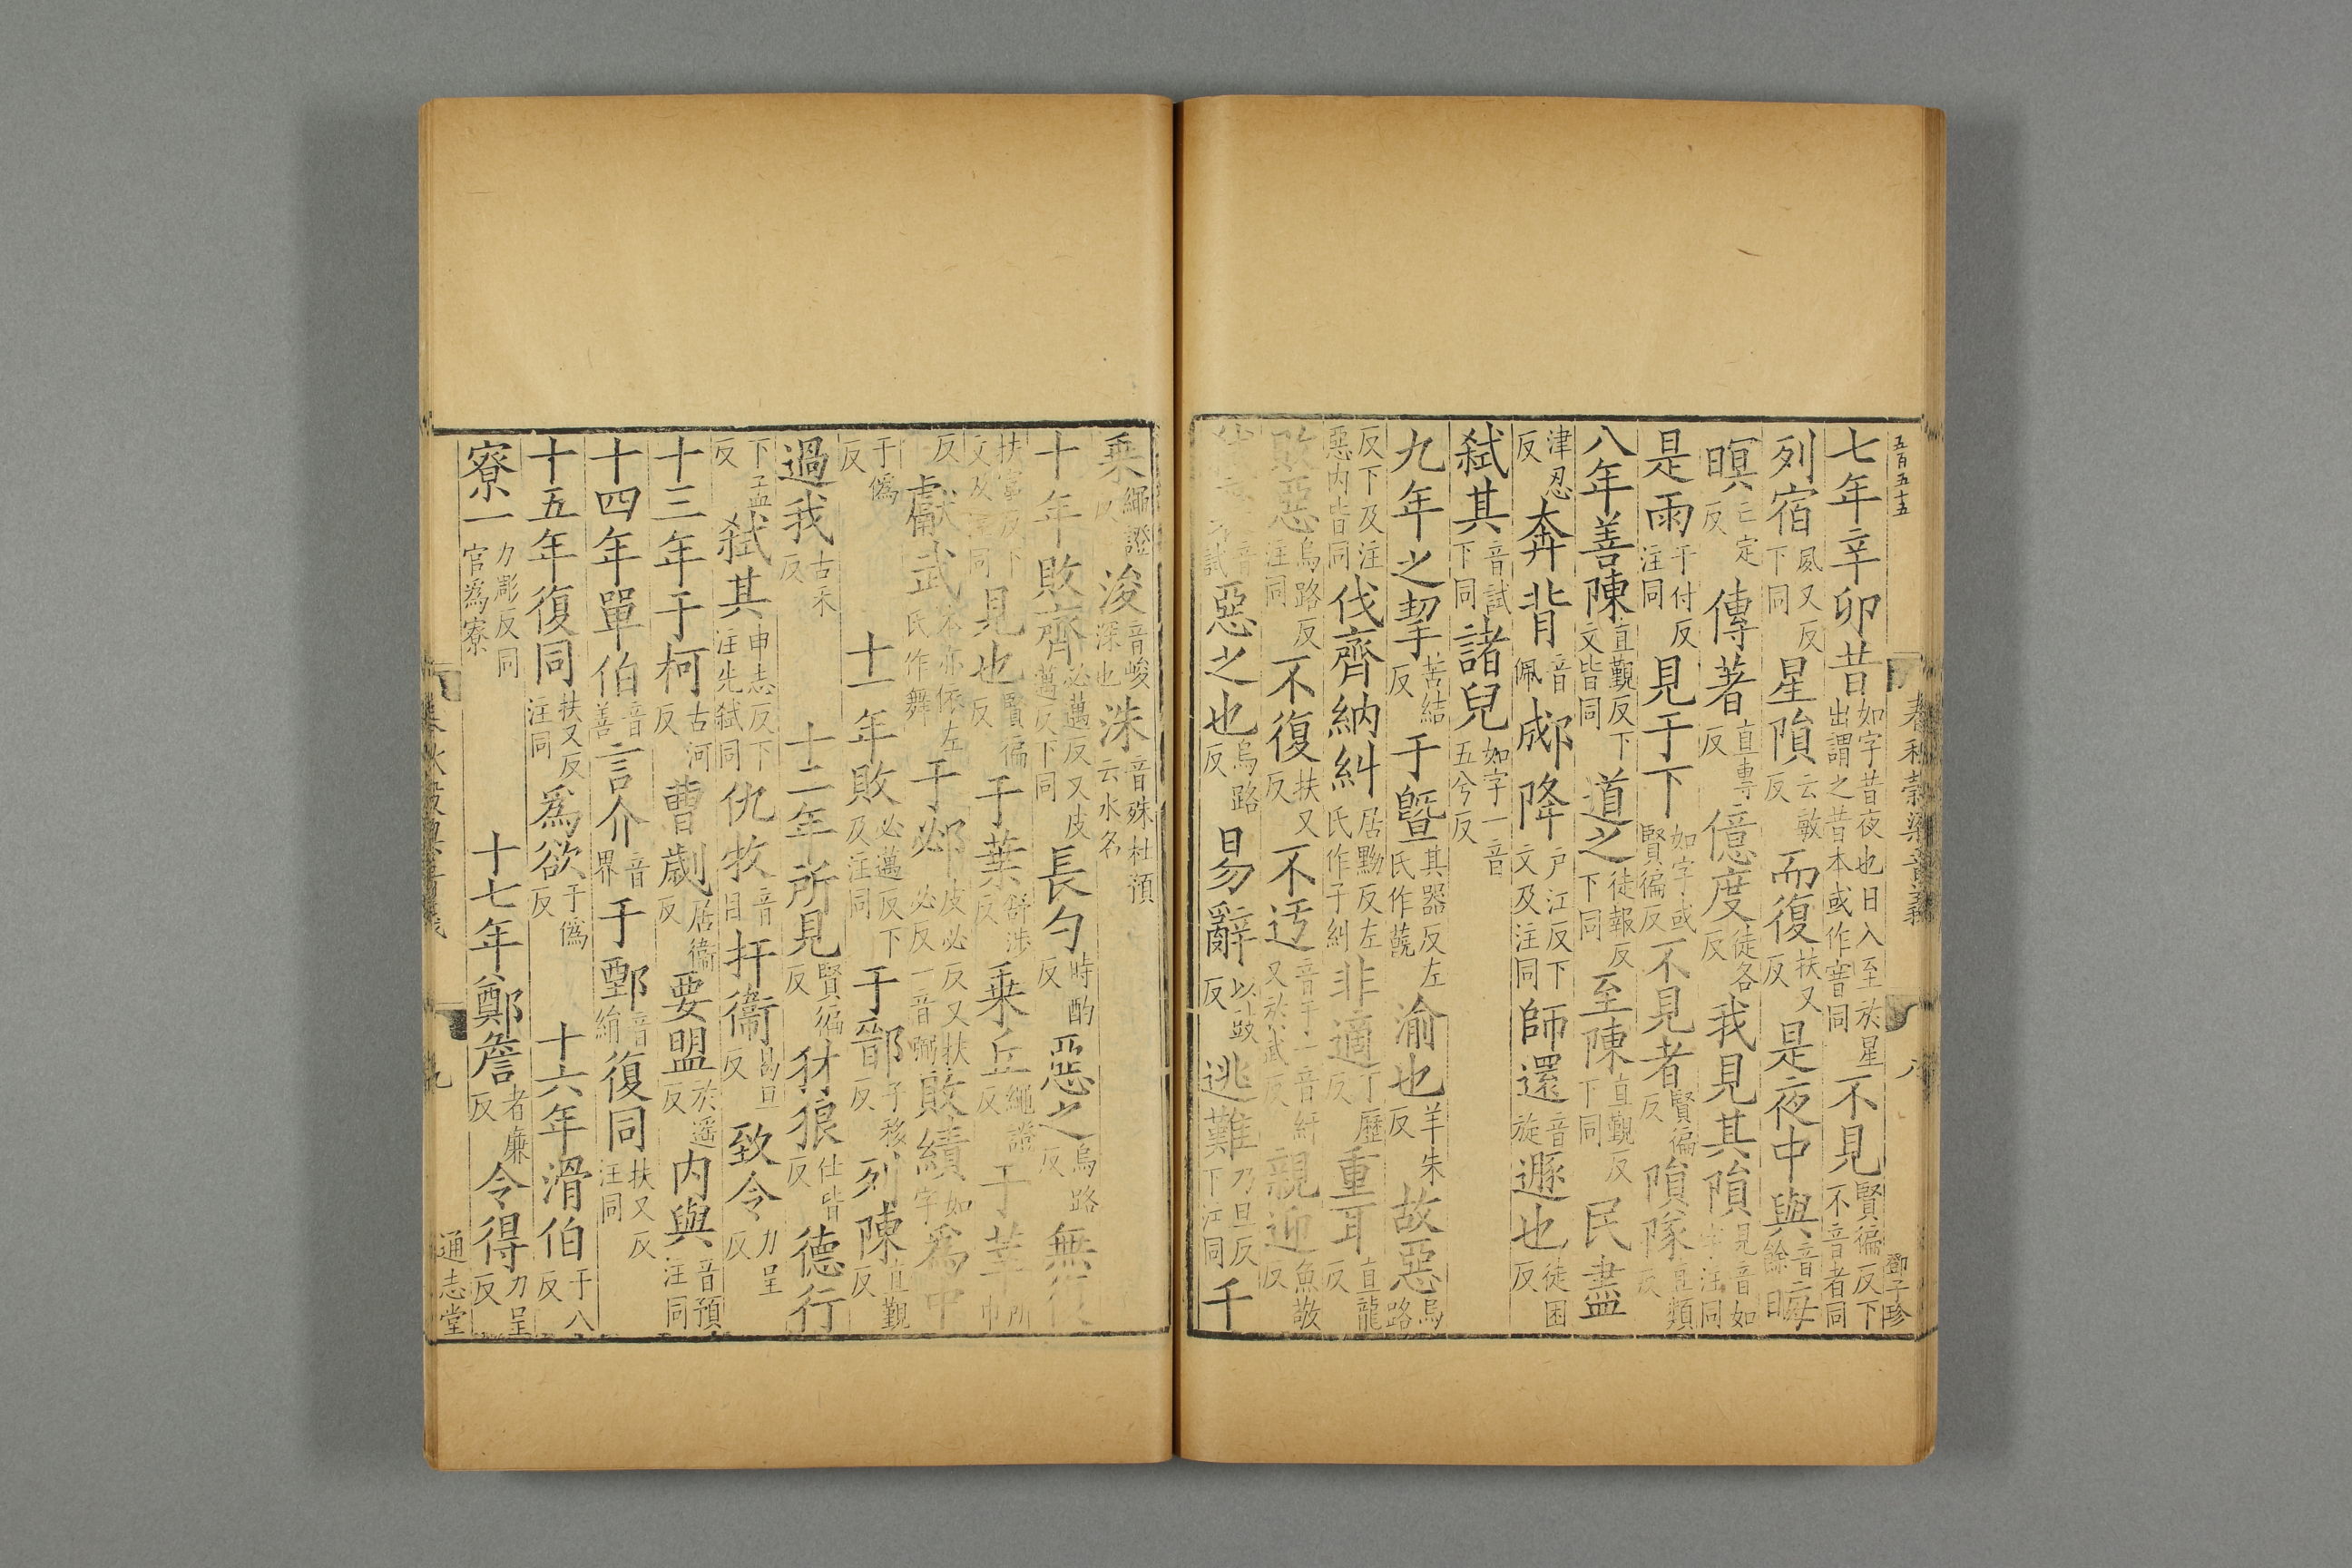 五百五十五
春秋穀梁音義
八
鄧子珍
七年辛卯昔如字昔夜也日入至於星出謂之昔本或作㫺同不見賢徧反下不音者同
列宿夙又反下同星隕云敏反而復扶又反是夜中與音餘晦
暝亡定反傳著直專反億度徒各反我見其隕見音如字注同
是雨于付反注同見于下如字或賢徧反不見者賢徧反隕隊直類反
八年善陳直覲反下文皆同道之徒報反下同至陳直覲反下同民盡
津忍反奔背音佩郕降户江反下文及注同師還音旋遯也徒困反
弑其音試下同諸兒如字一音五兮反
九年之挈苦結反于曁其器反左氏作蔇渝也羊朱反故惡烏路
反下及注惡内皆同伐齊納糾居黝反左氏作子糾非適丁歷反重耳直龍反
敗惡烏路反注同不復扶又反不迃音于一音紆又於武反親迎魚敬反
音試惡之也烏路反易辭以豉反逃難乃旦反下注同千
乘繩證反浚音峻深也洙音殊杜預云水名
十年敗齊必邁反又皮邁反下同長勺時酌反惡之烏路反無復
扶富反下文及注同見也賢徧反于葉舒涉反乗丘繩證反于莘所巾
反獻武本亦依左氏作舞于邲皮必反又扶必反一音弼敗績如字爲中
于僞反十一年敗必邁反下及注同于鄑子移反列陳直覲反
過我古禾反十二年所見賢徧反犲狼仕皆反德行
下孟反弑其申志反下注先弑同仇牧音目扞衞易旦反致令力呈反
十三年于柯古河反曹劌居衞反要盟於遥反内與音預注同
十四年單伯音善言介音界于鄄音絹復同扶又反注同
十五年復同扶又反注同爲欲于僞反十六年滑伯于八反
寮一力彫反同官爲寮十七年鄭詹者廉反令得力呈反
春秋穀梁音義
九
通志堂